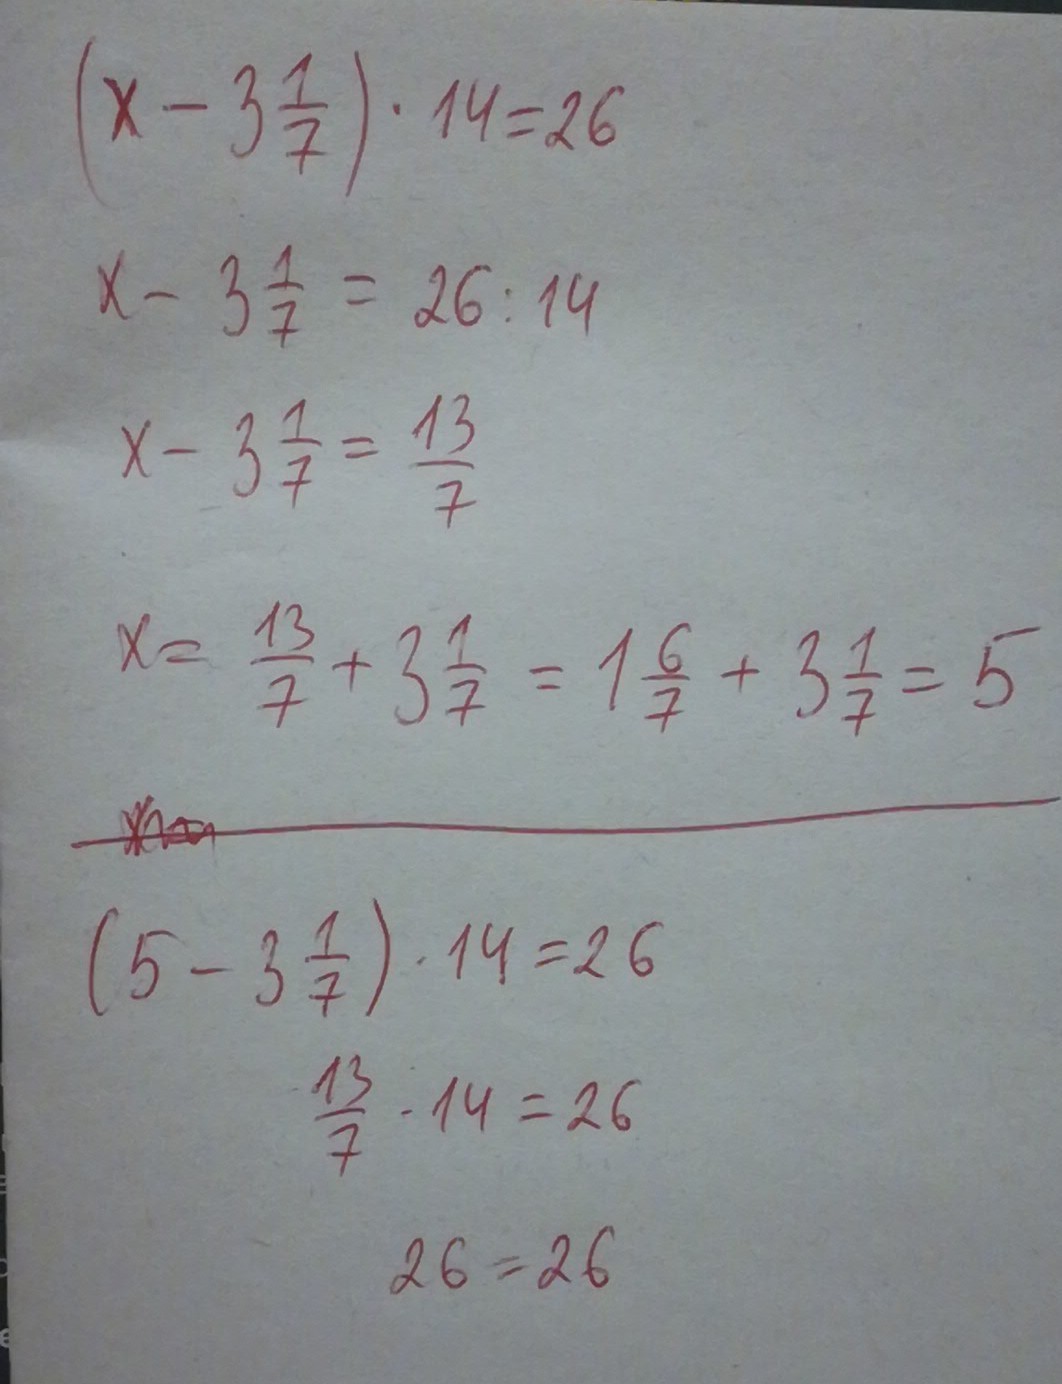 (x - 3 1/7) · 14 = 26
x - 3 1/7 = 26 : 14
x - 3 1/7 = 13/7
x = 13/7 + 3 1/7 = 1 6/7 + 3 1/7 = 5
(5 - 3 1/7) · 14 = 26
13/7 · 14 = 26
26 = 26